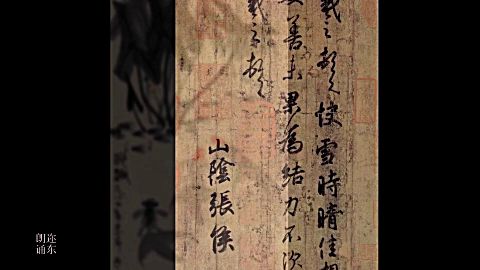 羲之頓首快雪時晴佳想
安善未果為結力不次
羲之頓首
山陰張侯
朗诵